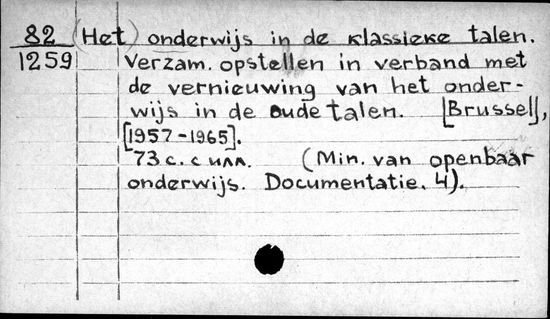 82 (Het) onderwijs in de klassieke talen.
1259 Verzam. opstellen in verband met
de vernieuwing van het onder-
wijs in de oude talen. [Brussel],
[1957-1965].
73 с. с илл. (Min. van openbaar
onderwijs. Documentatie. 4).